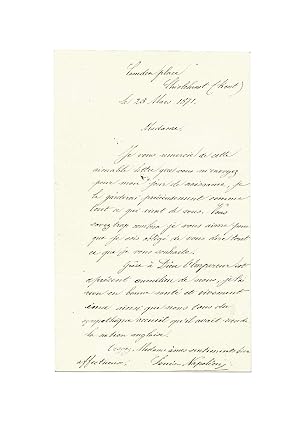 Camden place
Chislehurst (Kent)
le 23 Mars 1871.
Madame,
Je vous remercie de cette
aimable lettre que vous m'envoyez
pour mon jour de naissance, je
la garderai précieusement comme
tout ce qui vient de vous. Vous
savez trop combien je vous aime pour
que je sois obligé de vous dire tout
ce que je vous souhaite.
Grâce à Dieu l'Empereur est
à présent au milieu de nous, je l'ai
revu en bonne santé et vivement
ému ainsi que nous tous du
sympathique accueil qu'il avait reçu de
la nation anglaise.
Croyez, Madame à mes sentiments bien
affectueux. Louis Napoléon